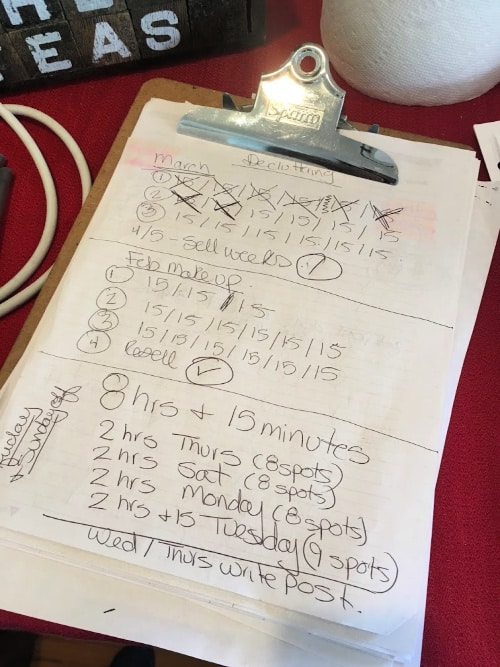 EAS
Sparco
March Decluttering
① 15/15/15/15/15/15
② 15/15/15/15/15/15
③ 15/15/15/15/15/15
4/5 - Sell weeks ✓
Feb make up
① 15/15/15
② 15/15/15/15/15/15
③ 15/15/15/15/15/15
④ Resell ✓
8 hrs + 15 minutes
2 hrs Thurs (8 spots)
2 hrs Sat (8 spots)
2 hrs Monday (8 spots)
2 hrs +15 Tuesday (9 spots)
Wed / Thurs write post.
Sunday off